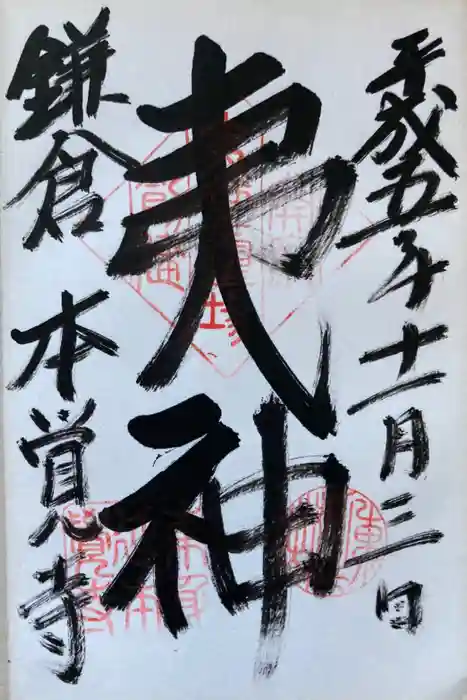 平成五年十一月三日
夷神
鎌倉
本覚寺